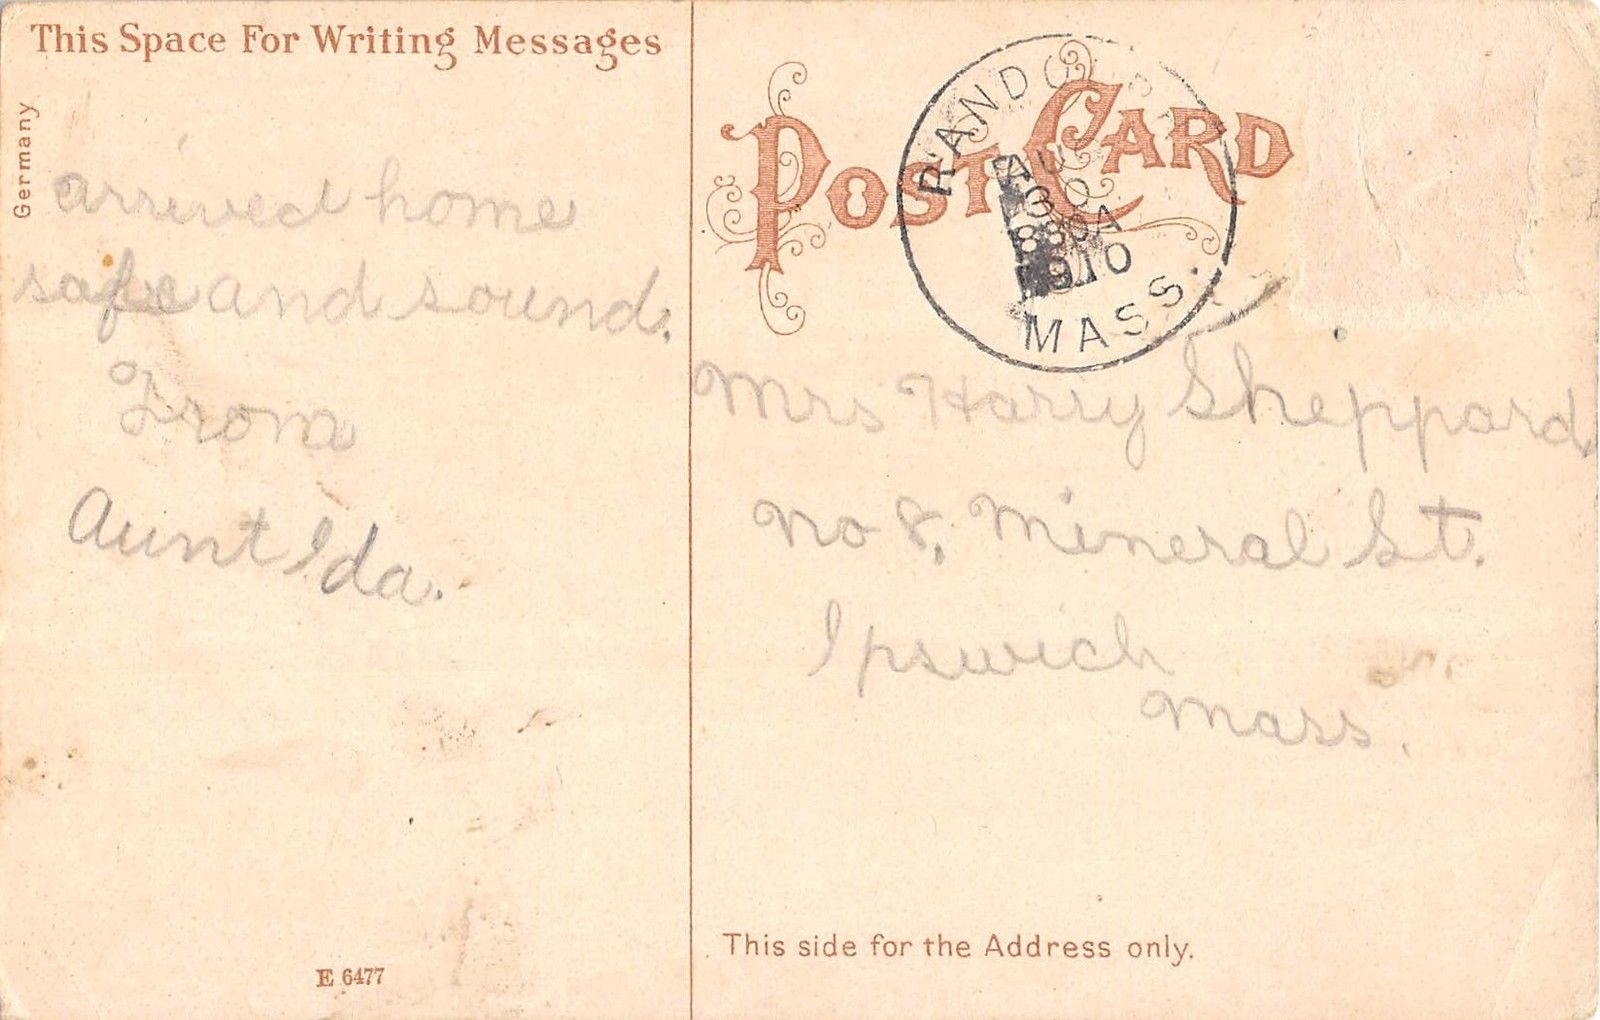 This Space For Writing Messages
Germany
arrived home
safe and sound.
From
Aunt Ida.
E 6477
POST CARD
MASS.
1910
Mrs Harry Sheppard
No 8, Mineral St.
Ipswich
Mass.
This side for the Address only.